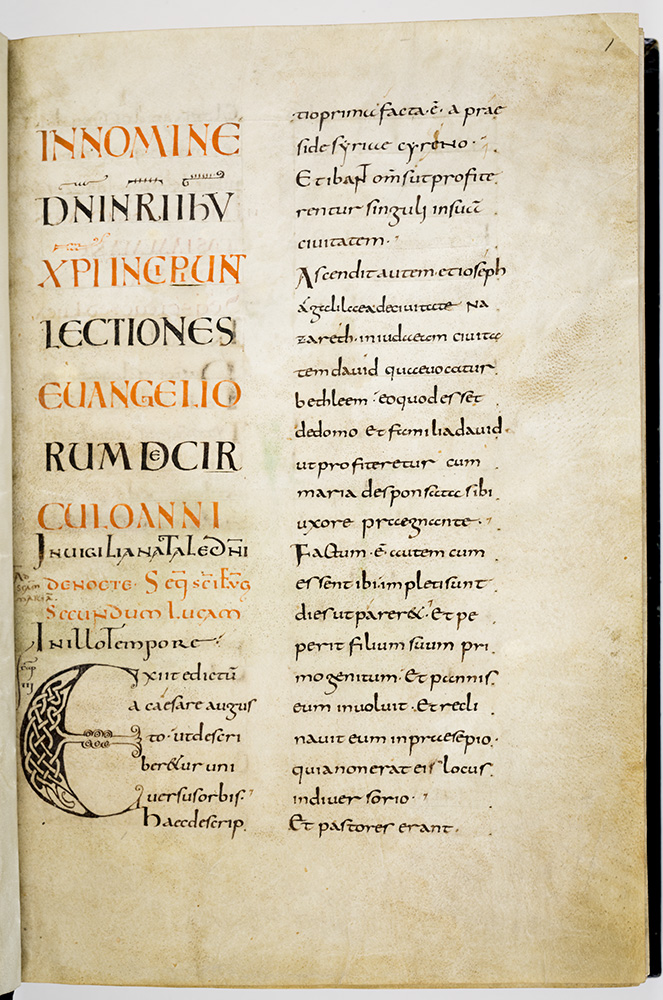 INNOMINE
DNINRIIhV
XPI INCIPIUNT
LECTIONES
EUANGELIO
RUM DE CIR
CULOANNI
INUIGILIANATALEDNI
DENOCTE. SEQ SCI EVG
SECUNDUM LUCAM
INILLOTEMPORE
Exiit edictū
a caesare augus
to. ut descri
ber&ur uni
uersus orbis.
haec descrip
tio primū facta. ē. a prae
side syriae cyreno.
Et ibaNT om̄s ut profite
rentur singuli in suā
ciuitatem.
Ascendit autem. et ioseph
a galilaea de ciuitate NA
zareth. in iudaeam ciuita
tem dauid quae uocatur
bethleem. eo quod esset
de domo et familia dauid.
ut profiteretur cum
maria desponsata sibi
uxore praegnante.
Factum. ē. autem cum
essent ibi impleti sunt
dies ut parer&. Et pe
perit filium suum pri
mogenitum. Et pannis
eum inuoluit. Et recli
nauit eum in praesepio.
quia non erat eis locus
in diuersorio.
Et pastores erant.